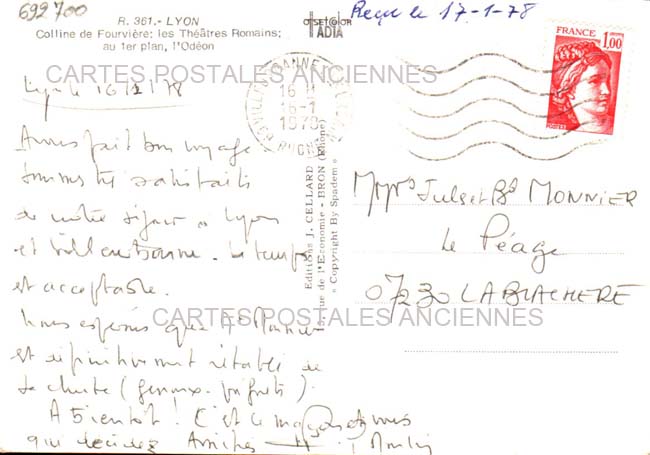 692700
R. 361.- LYON
Colline de Fourvière: les Théâtres Romains;
au 1er plan, l'Odéon
OFFSETCOLOR
IADIA
Reçu le 17-1-78
FRANCE
1,00
POSTES
CARTES POSTALES ANCIENNES
16 H
16-1
1978
RHONE
Lyon le 16/1/78
Avons fait bon voyage
sommes très satisfaits
de notre séjour à Lyon
et Villeurbanne. Le temps
est acceptable.
Nous espérons que M Monnier
est définitivement rétabli de
sa chute (genoux-poignets).
A Bientôt! C'est
qui décidez Amitiés
Editions J. CELLARD
15, rue de l'Economie - BRON (Rhône)
« Copyright By Spadem »
Jules et MONNIER
Le Péage
07230 LABLACHERE
CARTES POSTALES ANCIENNES